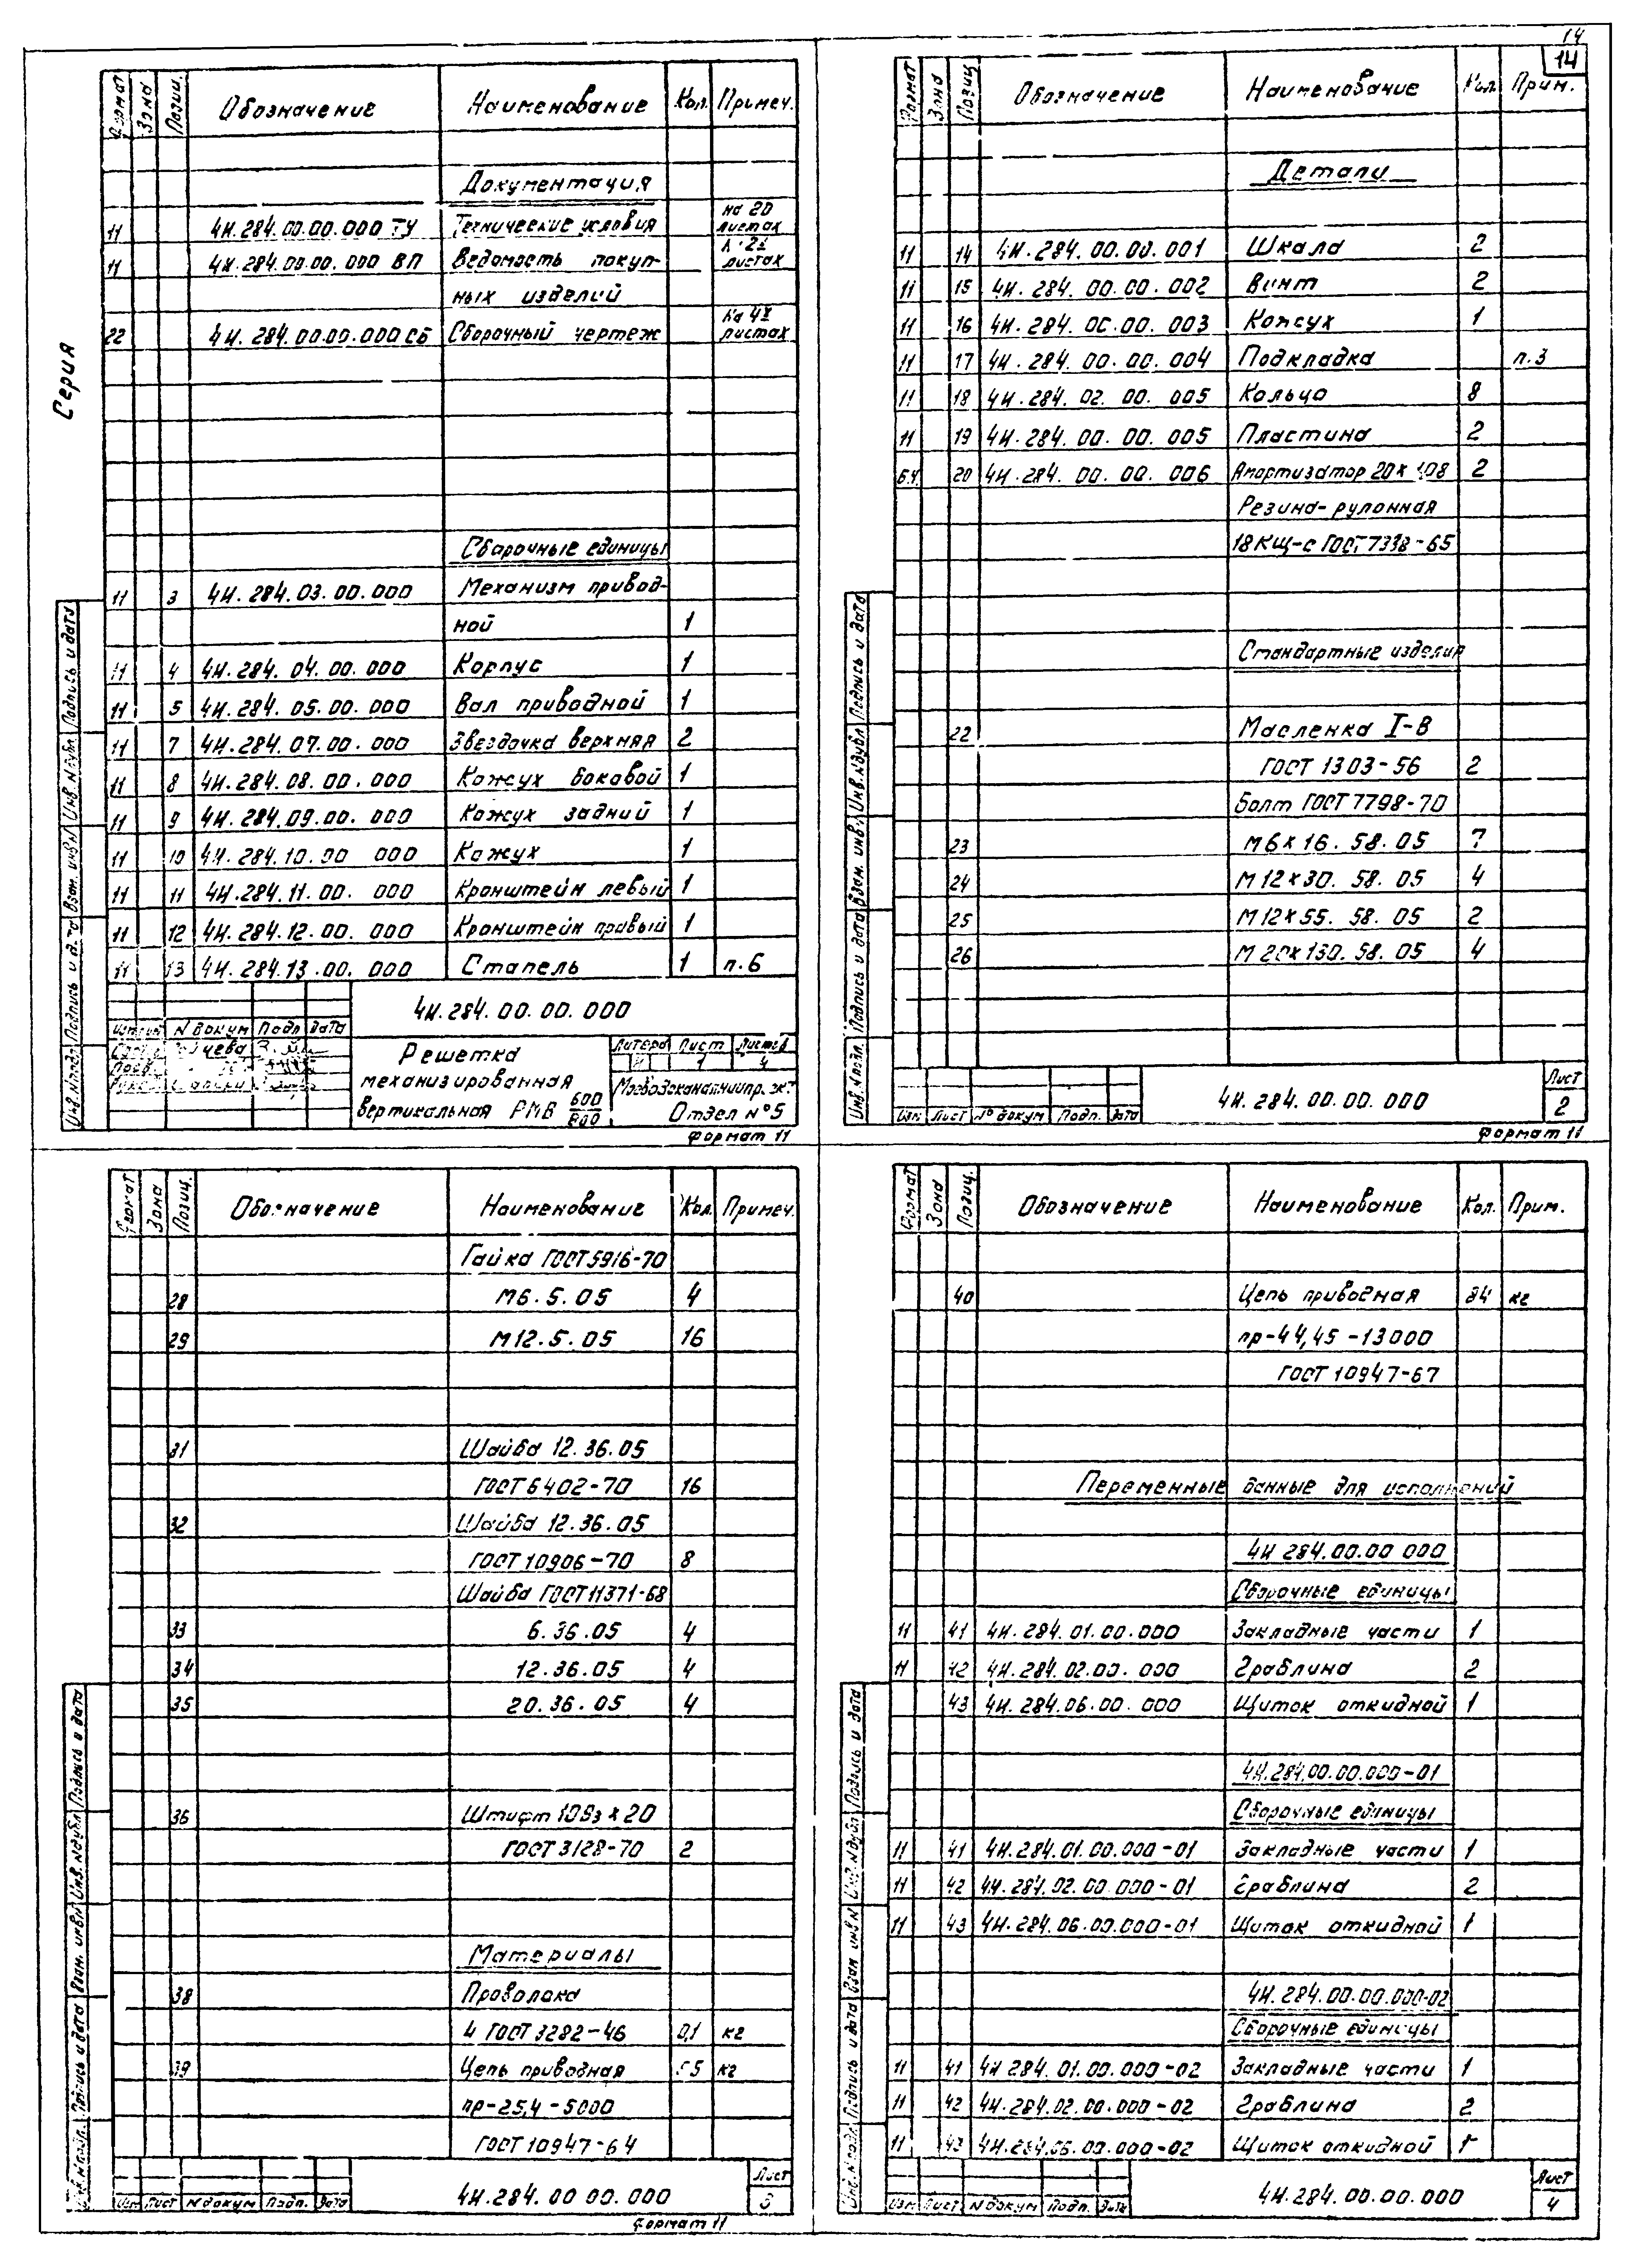 14
14
Серия
Формат Зона Позиц. Обозначение Наименование Кол. Примеч.
Документация
11 4И.284.00.00.000 ТУ Технические условия на 20 листах
11 4И.284.00.00.000 ВП Ведомость покуп- листах
ных изделий
22 4И.284.00.00.000 СБ Сборочный чертеж на 4х листах
Сборочные единицы
11 3 4И.284.03.00.000 Механизм привод-
ной 1
11 4 4И.284.04.00.000 Корпус 1
11 5 4И.284.05.00.000 Вал приводной 1
11 7 4И.284.07.00.000 Звездочка верхняя 2
11 8 4И.284.08.00.000 Кожух боковой 1
11 9 4И.284.09.00.000 Кожух задний 1
11 10 4И.284.10.00 000 Кожух 1
11 11 4И.284.11.00.000 Кронштейн левый 1
11 12 4И.284.12.00.000 Кронштейн правый 1
11 13 4И.284.13.00.000 Стапель 1 п.6
4И.284.00.00.000
N докум Подп Дата
Решетка
механизированная
вертикальная РМВ 600/800
Литера Лист Листов
1 4
Мосводоканалниипроект
Отдел №5
Инв.Nподл Подпись и дата Взам. инв.N Инв.Nдубл. Подпись и дата
Формат 11
Формат Зона Позиц Обозначение Наименование Кол. Прим.
Детали
11 14 4И.284.00.00.001 Шкала 2
11 15 4И.284.00.00.002 Винт 2
11 16 4И.284.00.00.003 Кожух 1
11 17 4И.284.00.00.004 Подкладка п.3
11 18 4И.284.02.00.005 Кольцо 8
11 19 4И.284.00.00.005 Пластина 2
б.ч. 20 4И.284.00.00.006 Амортизатор 20х108 2
Резина-рулонная
18 КЩ-с ГОСТ 7338-65
Стандартные изделия
22 Масленка I-В
ГОСТ 1303-56 2
Болт ГОСТ 7798-70
23 М6х16.58.05 7
24 М12х30.58.05 4
25 М12х55.58.05 2
26 М20х130.58.05 4
Инв.Nподл. Подпись и дата Взам. инв. Инв.Nдубл Подпись и дата
Изм Лист № докум Подп. Дата
4И.284.00.00.000
Лист
2
Формат 11
Формат Зона Позиц. Обозначение Наименование Кол. Примеч.
Гайка ГОСТ 5916-70
28 М6.5.05 4
29 М12.5.05 16
31 Шайба 12.36.05
ГОСТ 6402-70 16
32 Шайба 12.36.05
ГОСТ 10906-70 8
Шайба ГОСТ 11371-68
33 6.36.05 4
34 12.36.05 4
35 20.36.05 4
36 Штифт 10 х 20
ГОСТ 3128-70 2
Материалы
38 Проволока
4 ГОСТ 3282-46 0,1 кг
39 Цепь приводная кг
пр-25,4-5000
ГОСТ 10947-64
Инв.Nподл. Подпись и дата Взам. инв.N Инв.Nдубл Подпись и дата
Изм Лист N докум Подп. Дата
4И.284.00 00.000
Лист
3
Формат 11
Формат Зона Позиц. Обозначение Наименование Кол. Прим.
40 Цепь приводная 84 кг
пр-44,45-13000
ГОСТ 10947-67
Переменные данные для исполнений
4И 284.00.00 000
Сборочные единицы
11 41 4И.284.01.00.000 Закладные части 1
11 42 4И.284.02.00.000 Граблина 2
43 4И.284.06.00.000 Щиток откидной 1
4И.284.00.00.000-01
Сборочные единицы
11 41 4И.284.01.00.000-01 Закладные части 1
11 42 4И.284.02.00.000-01 Граблина 2
11 43 4И.284.06.00.000-01 Щиток откидной 1
4И.284.00.00.000-02
Сборочные единицы
11 41 4И 284.01.00.000-02 Закладные части 1
11 42 4И.284.02.00.000-02 Граблина 2
11 43 4И.284.06.00.000-02 Щиток откидной 1
Инв.Nподл Подпись и дата Взам инв N Инв.Nдубл Подпись и дата
Изм Лист N докум Подп. Дата
4И.284.00.00.000
Лист
4